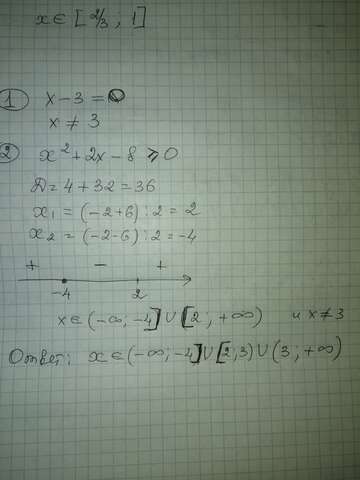 x ∈ [2/3; 1]
1 x - 3 = 0
x ≠ 3
2 x² + 2x - 8 ⩾ 0
D = 4 + 32 = 36
x₁ = (-2+6) : 2 = 2
x₂ = (-2-6) : 2 = -4
+ - +
-4 2
x ∈ (-∞; -4] ∪ [2; +∞) и x ≠ 3
Ответ: x ∈ (-∞; -4] ∪ [2; 3) ∪ (3; +∞)